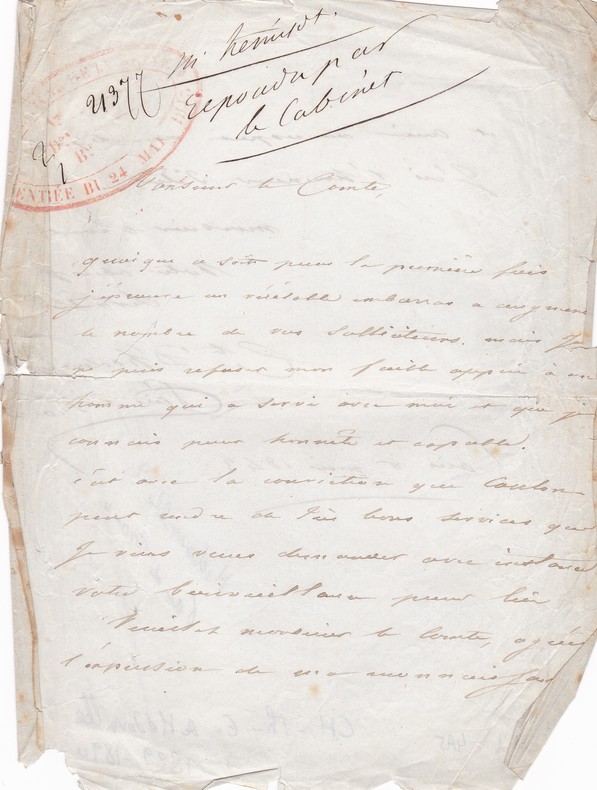 M. Remusat.
21377
Repondu par
le Cabinet
2/1
ENTRÉE DU 24 MAI
Monsieur le Comte,
quoique ce soit pour la première fois
j'éprouve un véritable embarras a augmenter
le nombre de vos solliciteurs. mais je
ne puis refuser mon faible appui à un
homme qui a servi avec moi et que je
connais pour honnête et capable.
c'est avec la conviction que Coulon
peut rendre de très bons services que
je viens vous demander avec instance
votre bienveillance pour lui
Veuillez monsieur le Comte, agréer
l'expression de ma reconnaissance